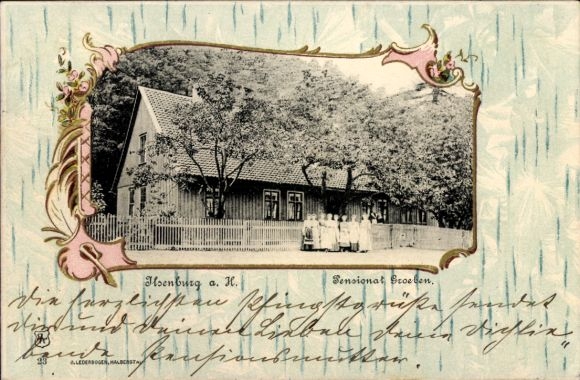 Ilsenburg a. H. Pensionat Groeben.
Die herzlichsten Pfingstgrüße sendet
dir und deinen Lieben deine dich lie-
bende Pensionsmutter.
23 J. LEDERBOGEN, HALBERSTA